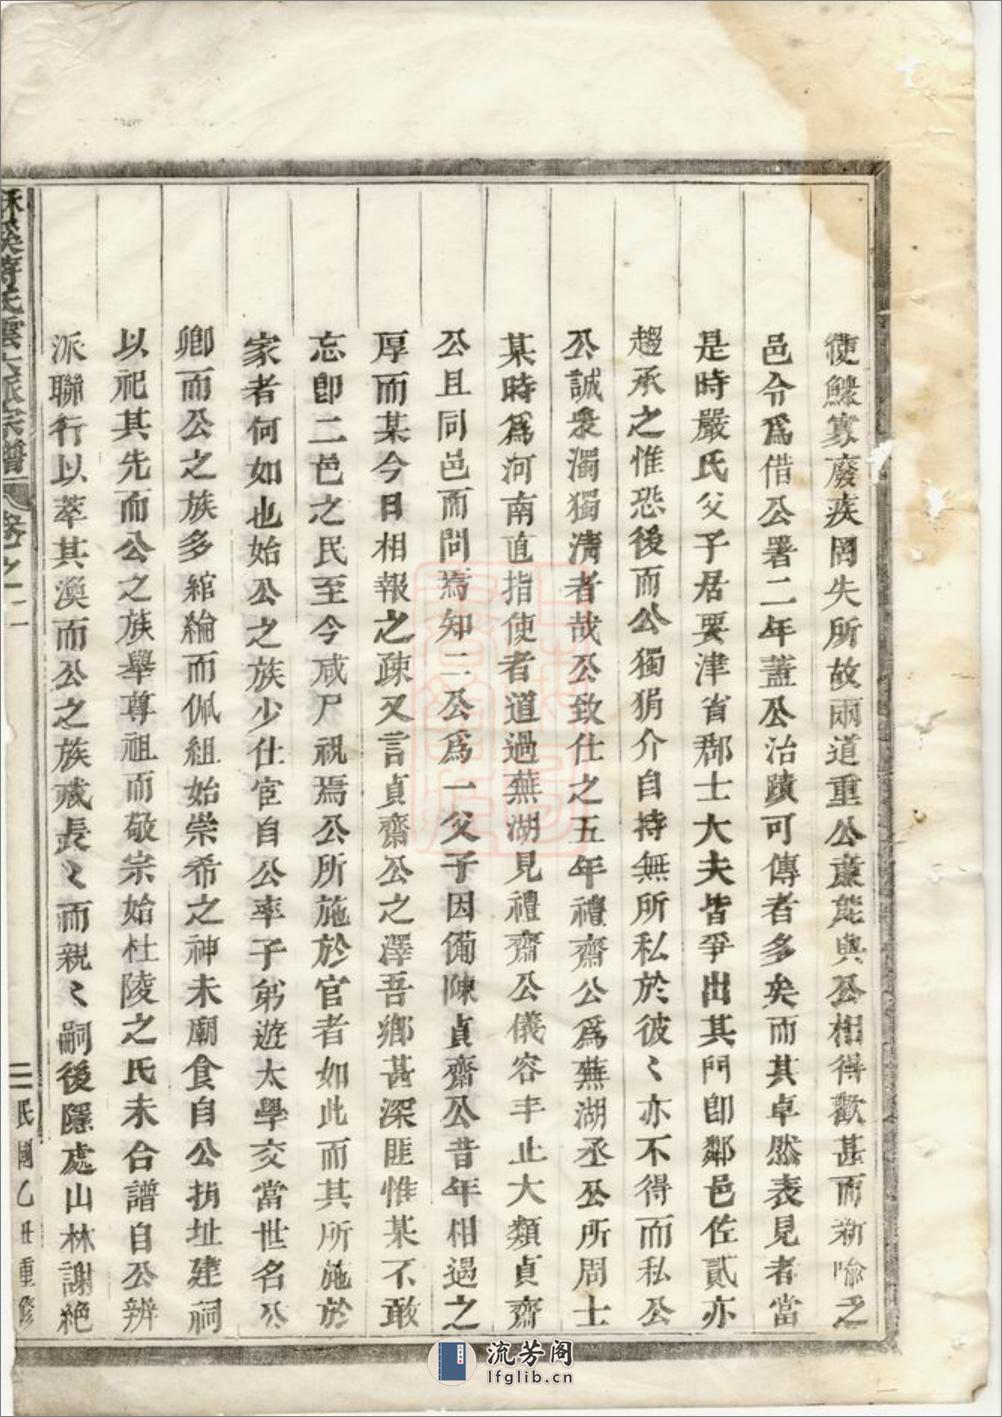 使鰥寡廢疾罔失所故兩道重公廉能與公相得歡甚而新喻之
邑令爲借公署二年蓋公治蹟可傳者多矣而其卓然表見者當
是時嚴氏父子居要津省郡士大夫皆爭出其門卽鄰邑佐貳亦
趨承之惟恐後而公獨狷介自持無所私於彼彼亦不得而私公
公誠衆濁獨淸者哉公致仕之五年禮齋公爲蕪湖丞公所周士
某時爲河南直指使者道過蕪湖見禮齋公儀容丰止大類貞齋
公且同邑而問焉知二公爲一父子因備陳貞齋公昔年相遇之
厚而某今日相報之疎又言貞齋公之澤吾鄉甚深匪惟某不敢
忘卽二邑之民至今咸尸祝焉公所施於官者如此而其所施於
家者何如也始公之族少仕宦自公率子弟遊太學交當世名公
卿而公之族多綰綸而佩組始崇希之神未廟食自公捐址建祠
以祀其先而公之族舉尊祖而敬宗始杜陵之氏未合譜自公辨
派聯行以萃其渙而公之族咸長〻而親〻嗣後隱處山林謝絕
溪蔣氏雲派宗譜 卷之二 二 民國乙丑重修
流芳阁
lfglib.cn